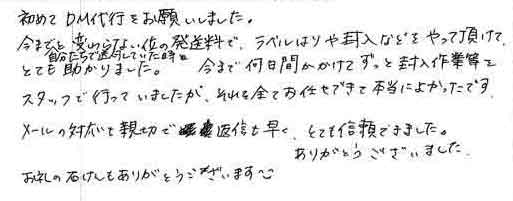 初めてDM代行をお願いしました。
今までと変わらない位の発送料で、ラベルはりや封入などをやって頂けて
自分たちで送付していた時と
とても助かりました。 今まで何日間かかけてずっと封入作業等を
スタッフで行っていましたが、それを全てお任せできて本当によかったです。
メールの対応も親切で返信も早く、とても信頼できました。
ありがとうございました。
お礼の石けんもありがとうございます